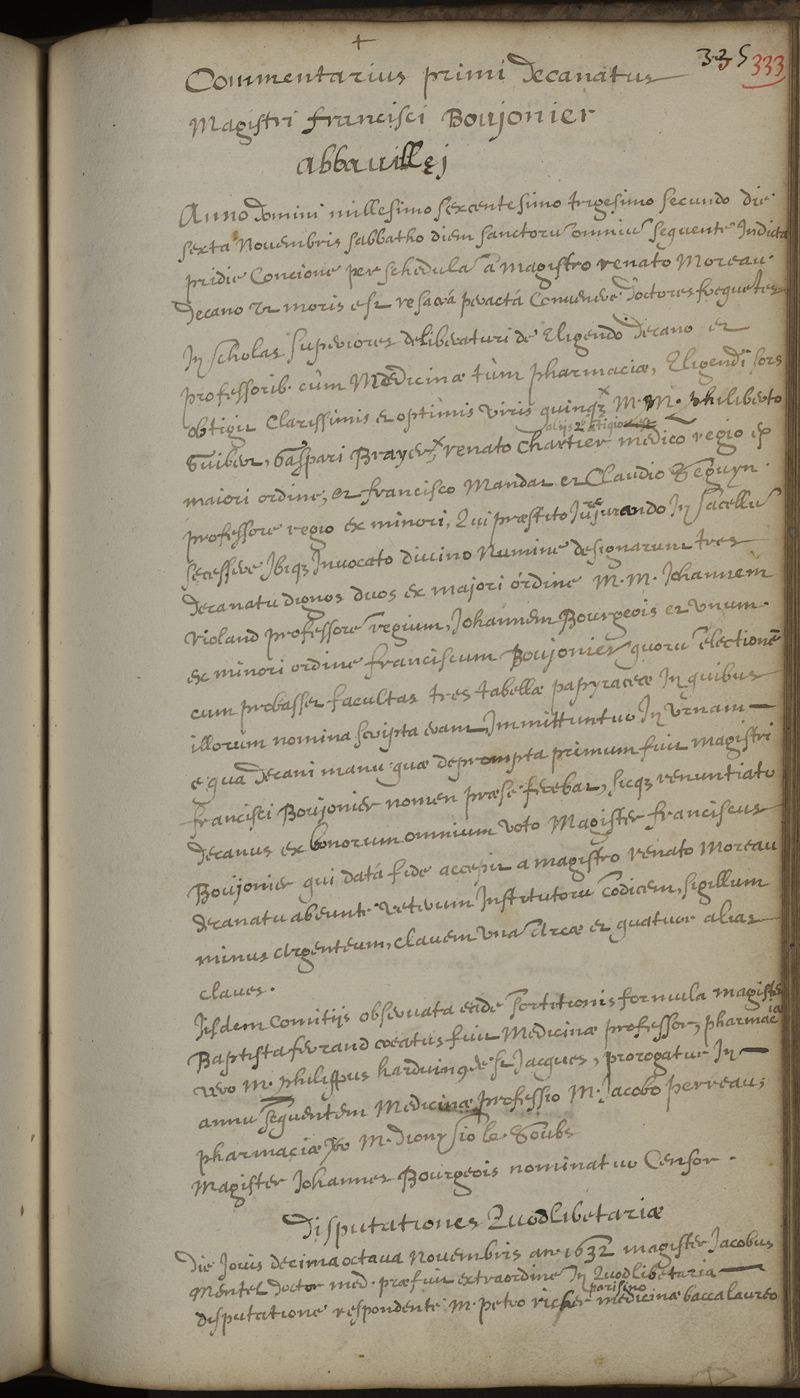 +
335 333
Commentarius primi Decanatus
Magistri francisci Boujonier
abbavillej
Anno Domini millesimo sexcentesimo trigesimo secundo die
sexta Novembris sabbatho diem sanctorū omniū sequente Indicta
pridie Concione per schedulā a magistro renato Moreau
Decano ut moris est re sacrá peractá Convenere Doctores frequentes
In scholas superiores deliberaturi de Eligendo Decano et
professorib. cùm Medicinæ tùm pharmaciæ, Eligendi sors
obtigit Clarissimis et optimis viris quinqz M. M. philiberto
alijs
Guibert, Gaspari Brayer, renato Chartier medico regio ex
maiori ordine, et francisco Mandat et Claudio Seguyn
professore regio ex minori, Qui præstito Jurejurando In sacellū
secessere Ibiqz Invocato divino Numine designarunt tres
Decanatu dignos duos ex majori órdine M. M. Johannem
Rioland professore regium, Johannem Bourgeois et vnum
ex minori ordine franciscum Boujonier quorū electionē
cum probasset facultas tres tabellæ papyraceæ In quibus
illorum nomina scripta erant Immittuntur In vrnam
e qua Decani manu quæ deprompta primum fuit magistri
francisci Boujonier nomen præ se ferebat, sicqz renuntiatr
Decanus ex bonorum omnium voto Magister franciscus
Boujonier qui datá fide accepit a magistro renato Moreau
decanatu abeunte veterum Institutorū Codicem, sigillum
minus argenteum, clavem vna Arcæ et quatuor alias
claves.
Iisdem Comitijs observata eadē sortitionis formula magister
Baptista ferrand creatus fuit Medicinæ professor, pharmaciæ
vero M. philippus harduin de st Jacques, prorogatur In
annū sequentem Medicinæ professio M. Jacobo perreau,
pharmaciæ vo M. Dionysio le Soubs
Magister Johannes Bourgeois nominatur Censor.
Disputationes Quodlibetariæ
Die Jovis decima octava Novembris an. 1632 magister Jacobus
Mentel Doctor med. præfuit extra ordinē In Quodlibetaria
parisino
disputatione respondente M. petro richer medicinæ baccalaureo